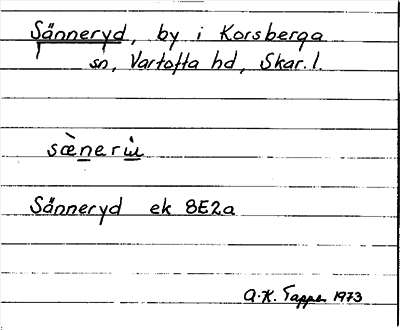 Sänneryd, by i Korsberga
sn, Vartofta hd, Skar. l.
sæ̀neri̇ɯ
Sänneryd ek 8E2a
A.K. Tappe 1973